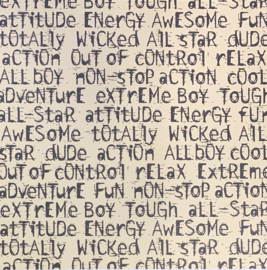 eXtReMe BoY ToUGh all-StaR
attitUDE ENeRGY AWESoMe FUN
tOtALLY WiCKeD AlL StaR DUDE
aCTiON OUT oF CoNtRol ReLaX
ALL bOY NON-StoP aCTiON cOOL
aDVeNtURE eXTReME BoY ToUGh
all-StaR attitUDE ENeRGY fUN
AWESoMe tOtALLY WiCKeD AlL
StaR DUDE aCTiON ALL bOY cOOL
OUT oF CoNtRol ReLaX EXtReME
aDVeNtURE FUN NON-StoP aCTiON
eXtReMe BoY ToUGh all-StaR
attitUDE ENeRGY AWESoMe FUN
tOtALLY WiCKeD All StaR DUDE
aCTiON OUT oF CoNtRol ReLaX